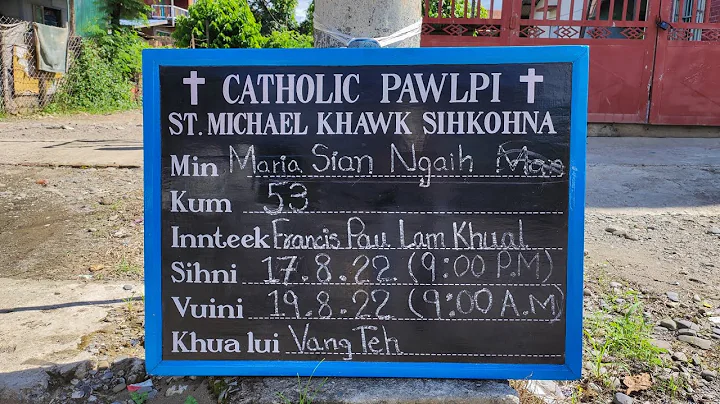 CATHOLIC PAWLPI
ST. MICHAEL KHAWK SIHKOHNA
Min Maria Sian Ngaih
Kum 53
Innteek Francis Pau Lam Khual
Sihni 17.8.22 (9:00 P.M)
Vuini 19.8.22 (9:00 A.M)
Khua lui Vang Teh